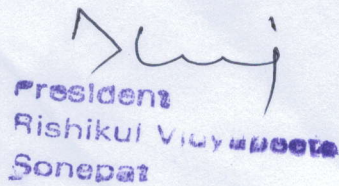 President
Rishikul Vidyapeeth
Sonepat